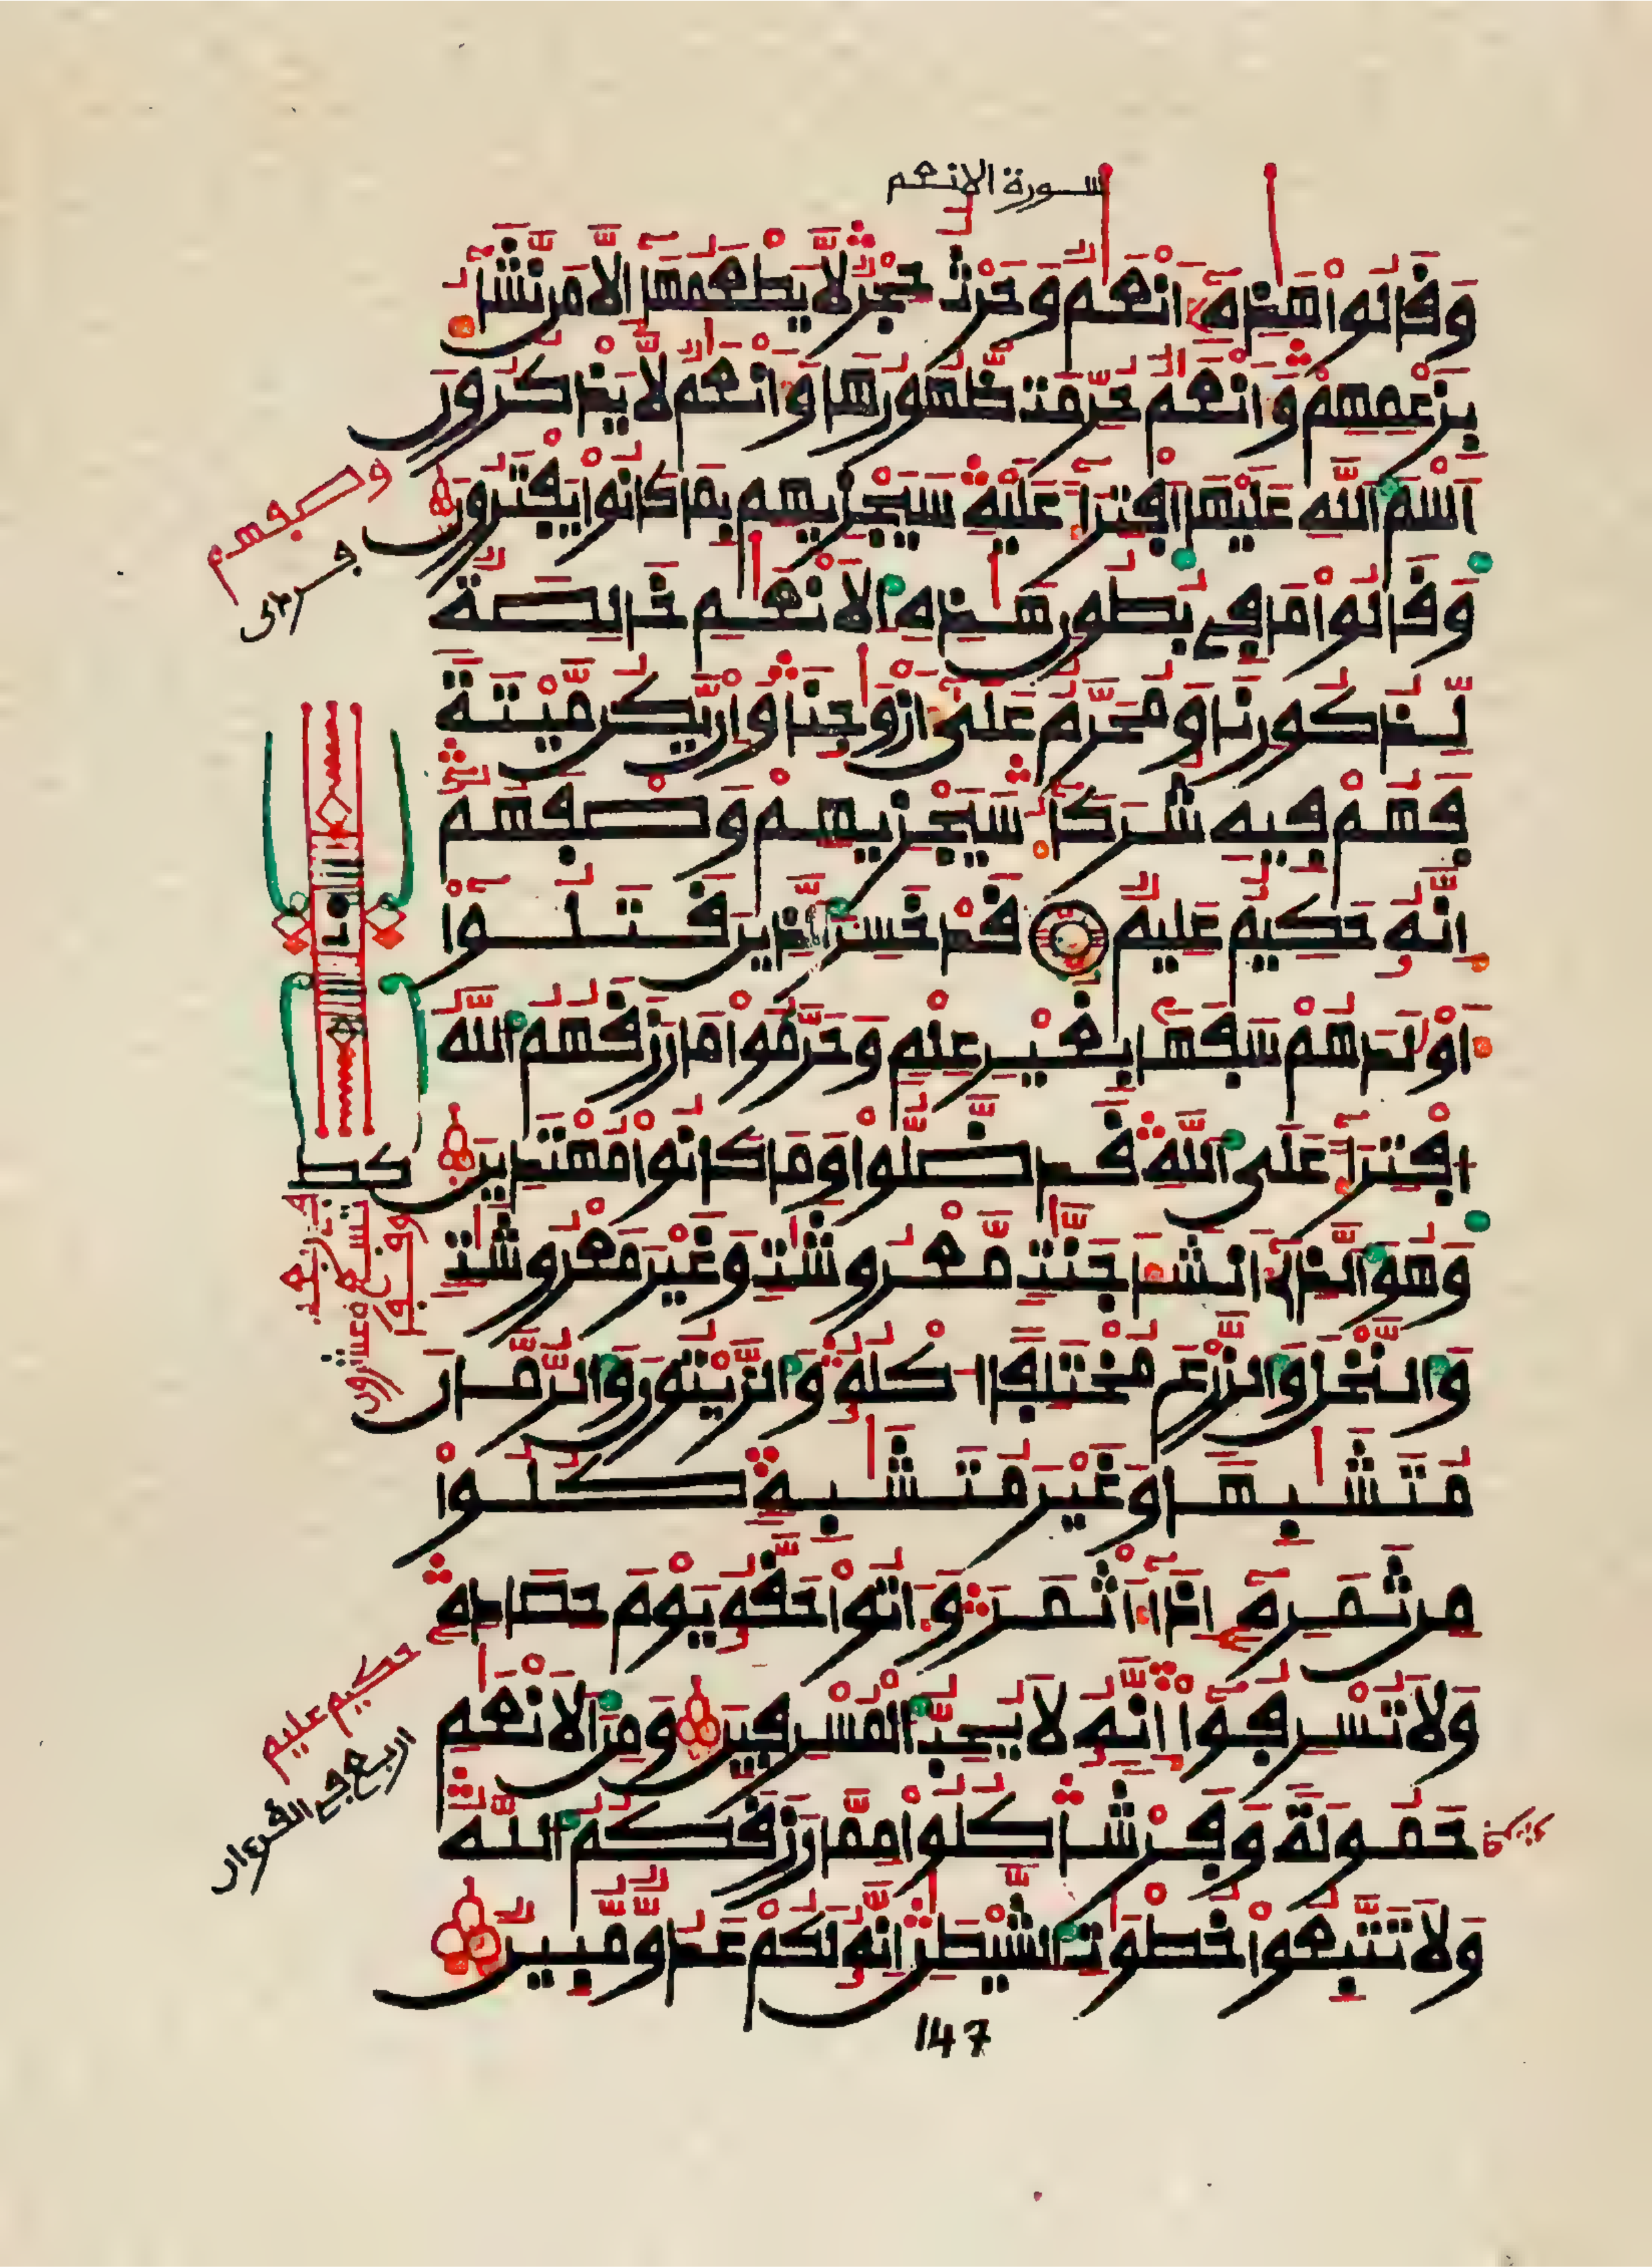 سورة الانعم
وَقَالُوا هَٰذِهِۦٓ أَنْعَٰمٌ وَحَرْثٌ حِجْرٌ لَّا يَطْعَمُهَآ إِلَّا مَن نَّشَآءُ
بِزَعْمِهِمْ وَأَنْعَٰمٌ حُرِّمَتْ ظُهُورُهَا وَأَنْعَٰمٌ لَّا يَذْكُرُونَ
اَسْمَ اَللَّهِ عَلَيْهَا اَفْتِرَآءً عَلَيْهِ سَيَجْزِيهِم بِمَا كَانُوا يَفْتَرُونَ
وَقَالُوا مَا فِے بُطُونِ هَٰذِهِ اِلَانْعَٰمِ خَالِصَةٌ
لِّذُكُورِنَا وَمُحَرَّمٌ عَلَىٰٓ أَزْوَٰجِنَا وَإِن يَّكُن مَّيْتَةً
فَهُمْ فِيهِ شُرَكَآءُ سَيَجْزِيهِمْ وَصْفَهُمْ
إِنَّهُۥ حَكِيمٌ عَلِيمٌ قَدْ خَسِرَ اَلذِينَ قَتَلُوٓا
أَوْلَٰدَهُمْ سَفَهاَۢ بِغَيْرِ عِلْمٍ وَحَرَّمُوا مَا رَزَقَهُمُ اُللَّهُ
اُفْتِرَآءً عَلَى اَللَّهِ قَد ضَّلُّوا وَمَا كَانُوا مُهْتَدِينَ
وَهُوَ اَلذِےٓ أَنشَأَ جَنَّٰتٍ مَّعْرُوشَٰتٍ وَغَيْرَ مَعْرُوشَٰتٍ
وَالنَّخْلَ وَالزَّرْعَ مُخْتَلِفاً اُكْلُهُۥ وَالزَّيْتُونَ وَالرُّمَّانَ
مُتَشَٰبِهاً وَغَيْرَ مُتَشَٰبِهٍ كُلُوا
مِن ثَمَرِهِۦٓ إِذَآ أَثْمَرَ وَءَاتُوا حَقَّهُۥ يَوْمَ حِصَادِهِۦ
وَلَا تُسْرِفُوٓا إِنَّهُۥ لَا يُحِبُّ اُلْمُسْرِفِينَ وَمِنَ اَلَانْعَٰمِ
حَمُولَةً وَفَرْشاً كُلُوا مِمَّا رَزَقَكُمُ اُللَّهُ
وَلَا تَتَّبِعُوا خُطْوَٰتِ اِلشَّيْطَٰنِ إِنَّهُۥ لَكُمْ عَدُوٌّ مُّبِينٌ
147
وصفهم
حكيم عليم
اربع في القرءان
كط